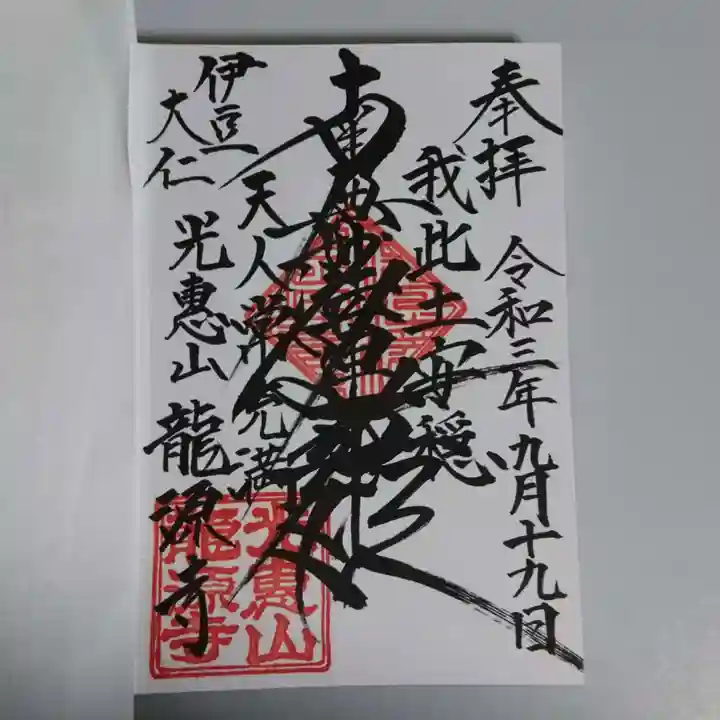 奉拝
令和三年九月十九日
我此土安穏
南無妙法蓮華経
天人常充満
伊豆
大仁
光恵山
龍源寺
光恵山
龍源寺